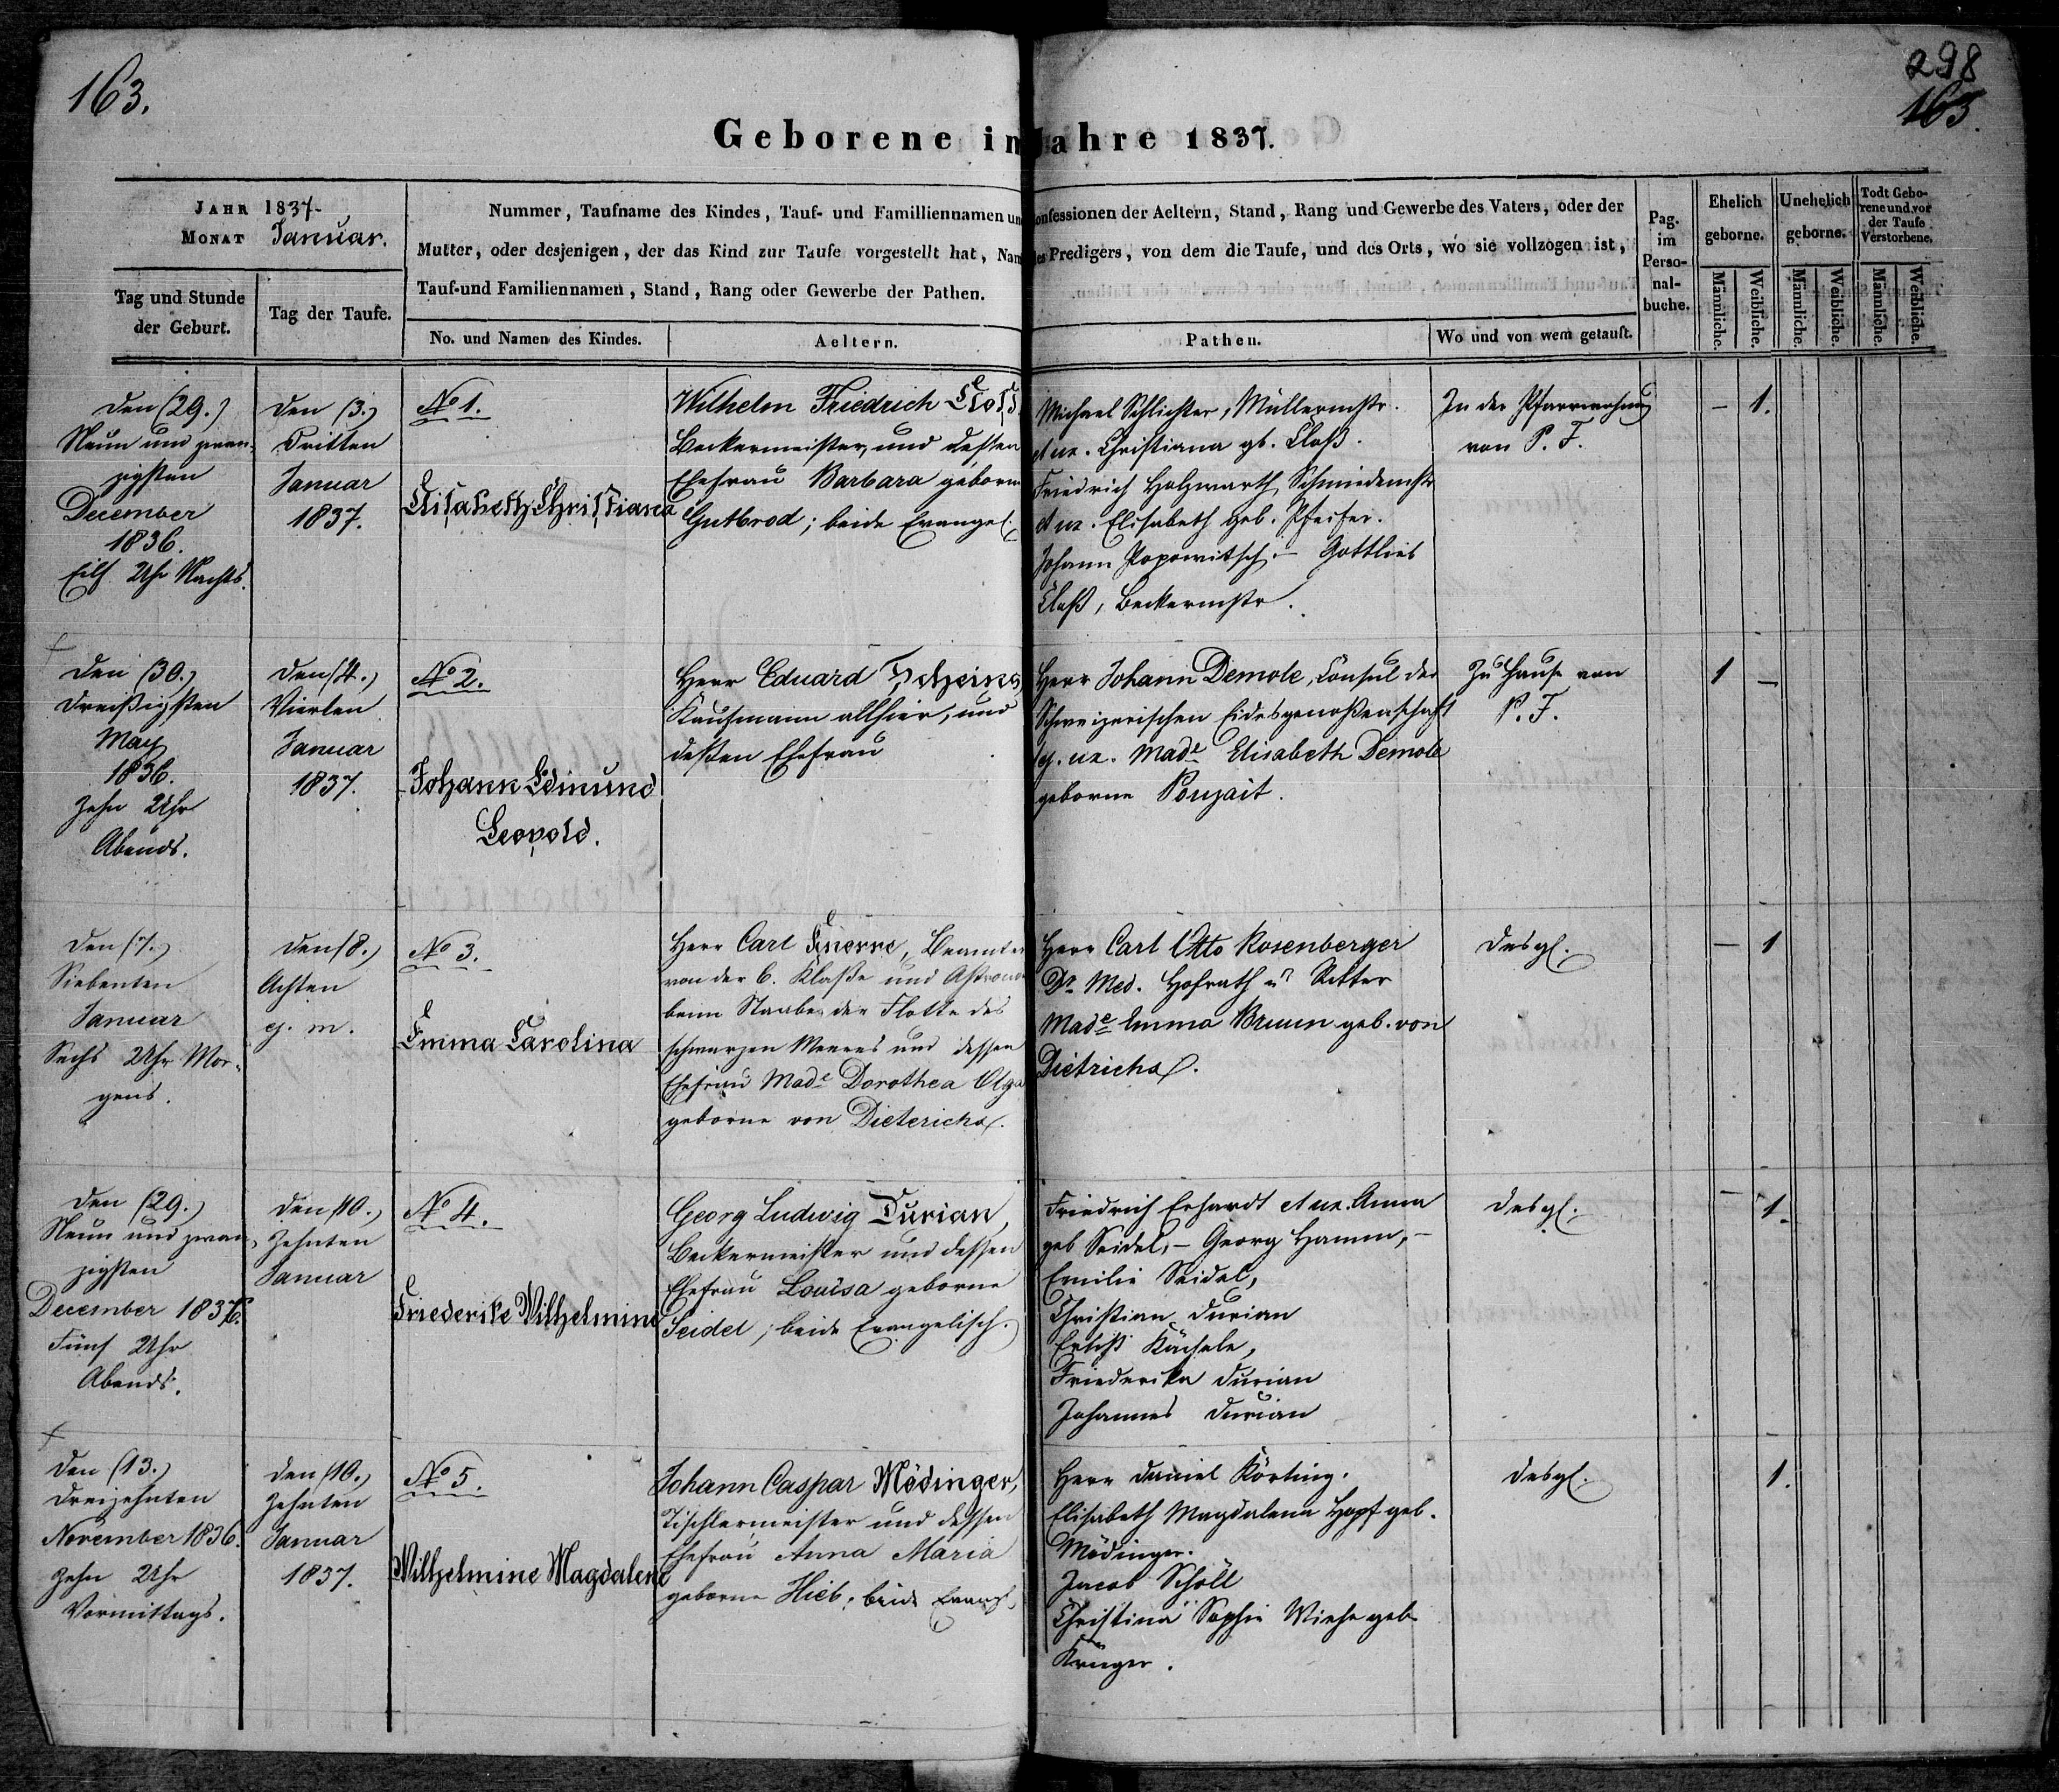 163.
298
163.
Geborene im Jahre 1837.
JAHR 1837.
MONAT Januar.
Nummer, Taufname des Kindes, Tauf- und Familiennamen und Confessionen der Aeltern, Stand, Rang und Gewerbe des Vaters, oder der
Mutter, oder desjenigen, der das Kind zur Taufe vorgestellt hat, Name des Predigers, von dem die Taufe, und des Orts, wo sie vollzogen ist,
Tauf-und Familiennamen, Stand, Rang oder Gewerbe der Pathen.
Tag und Stunde
der Geburt.
Tag der Taufe.
No. und Namen des Kindes.
Aeltern.
Pathen.
Wo und von wem getauft.
Pag.
im
Perso-
nal-
buche.
Ehelich
geborne.
Unehelich
geborne.
Todt Gebo-
rene und vor
der Taufe
Verstorbene.
Männliche.
Weibliche.
Männliche.
Weibliche.
Männliche.
Weibliche.
Den (29.)
Neun und zwan-
zigsten
December
1836.
Eilf Uhr Nachts.
Den (3.)
Dritten
Januar
1837.
No 1.
Elisabeth Christiana
Wilhelm Friedrich Cloß
Beckermeister, und dessen
Ehefrau Barbara geborne
Gutbrod; beide Evangel.
Michael Schlichter, Müllermstr.
et ux. Christiana gb. Cloß.
Friedrich Holzwarth, Schmiedemstr
et ux. Elisabeth geb. Pfeifer.
Johann Popowitsch. – Gottlieb
Cloß, Beckermstr.
In der Pfarrwohnung
von P. F.
– 1.
Den (30.)
Dreißigsten
May
1836.
Zehn Uhr
Abends.
Den (4.)
Vierten
Januar
1837.
No 2.
Johann Edmund
Leopold.
Herr Eduard
Kaufmann allhier, und
deßen Ehefrau
Herr Johann Demole, Consul der
Schweizerischen Eidesgenoßenschaft
cj. ux. Made Elisabeth Demole
geborne Pouzait.
Zu Hause von
P. F.
1 –
Den (7.)
Siebenten
Januar
Sechs Uhr Mor-
gens.
Den (8.)
Achten
ej. m.
No 3.
Emma Carolina
Herr Carl Knorre, Beamter
von der 6. Klaße und Astronom
beim Staabe der Flotte des
schwarzen Meeres und dessen
Ehefrau Made Dorothea Olga
geborne von Dieterichs.
Herr Carl Otto Rosenberger
Dr Med. Hofrath u. Ritter
Made Emma Bruun geb. von
Dietrichs.
Desgl.
– 1
Den (29.)
Neun und zwan-
zigsten
December 1836.
Fünf Uhr
Abends.
Den (10.)
Zehnten
Januar
No 4.
Friederike Wilhelmine
Georg Ludwig Durian,
Beckermeister und dessen
Ehefrau Louisa geborne
Seidel; beide Evangelisch.
Friedrich Erhardt et ux. Anna
geb Seidel, – Georg Hamm, –
Emilie Seidel,
Christian Durian
Kächele,
Friederika Durian
Johannes Durian
Desgl.
– 1.
Den (13.)
Dreizehnten
November 1836.
Zehn Uhr
Vormittags.
Den (10.)
Zehnten
Januar
1837.
No 5.
Wilhelmine Magdalene
Johann Caspar Mödinger,
Tischlermeister und dessen
Ehefrau Anna Maria
geborne Hieb; beide Evang.
Herr Daniel Körting.
Elisabeth Magdalena Hopf geb.
Mödinger.
Jacob Schöll
Christina Sophie Wiehe geb
Krüger.
Desgl.
1.